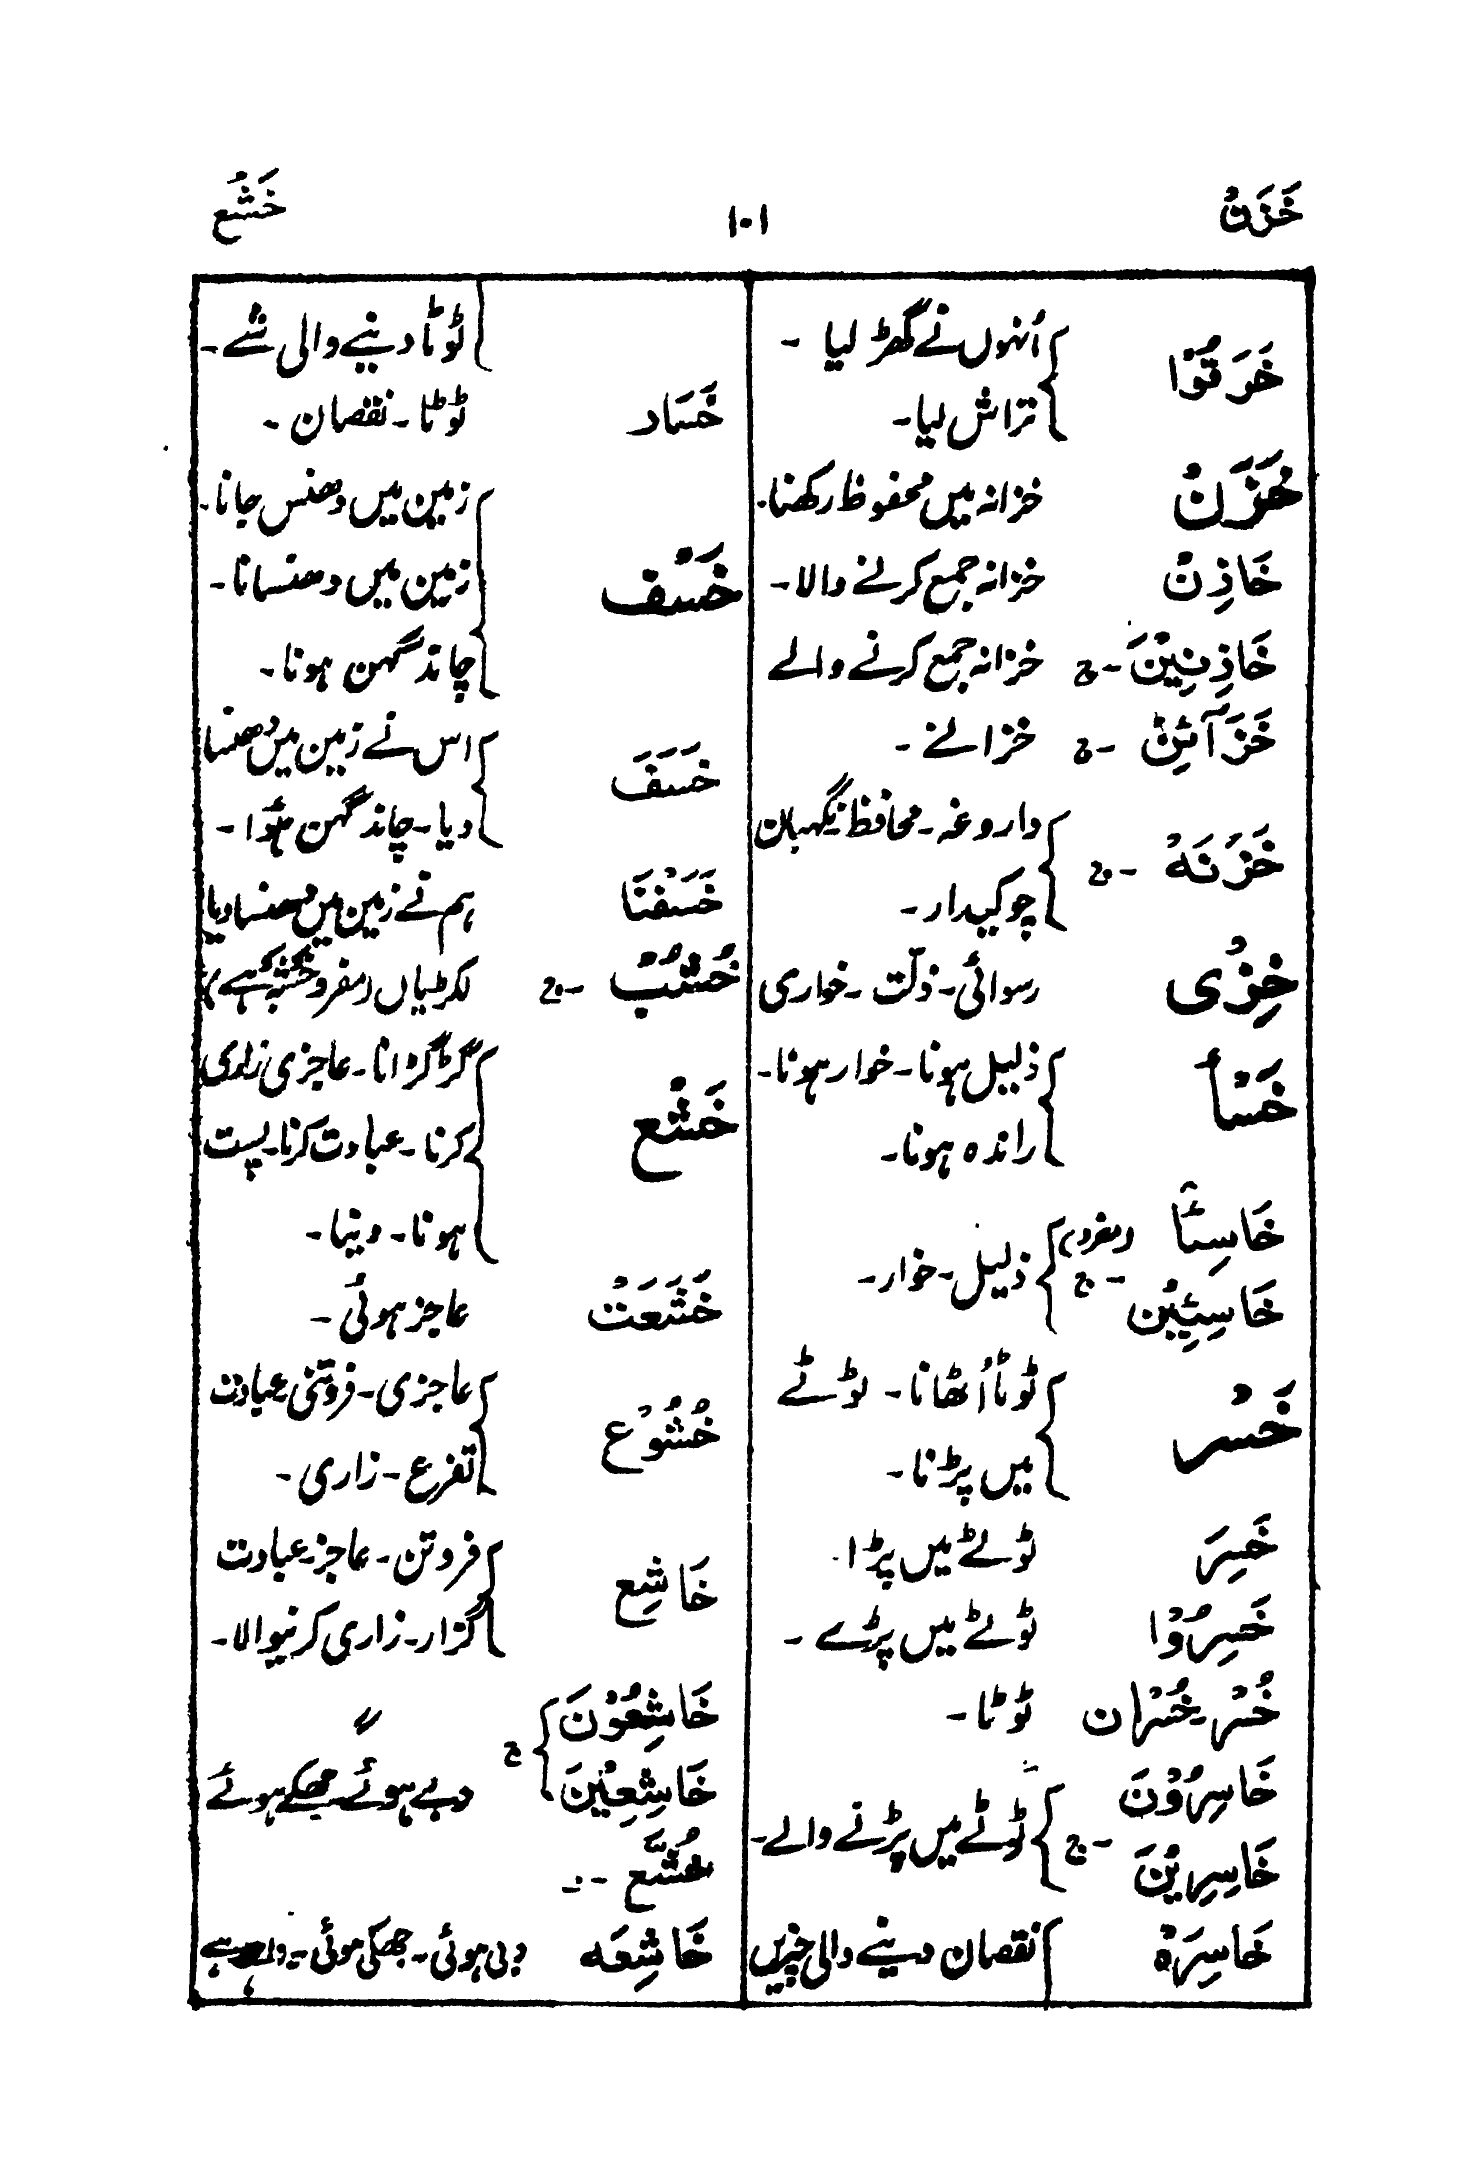 خَزَنْ ۱۰۱ خَشَع
خَرَقُوْا اُنہوں نے گھڑ لیا -
تراش لیا -
خَزَنْ خزانہ میں محفوظ رکھنا -
خَاذِنْ خزانہ جمع کرنے والا -
خَاذِنِیْنَ - ج خزانہ جمع کرنے والے
خَزَآئِنْ - ج خزانے -
خَزَنَہْ - ج داروغہ - محافظ نگہبان
چوکیدار -
خِزْی رسوائی - ذلّت - خواری
خَسْأ ذلیل ہونا - خوار ہونا -
راندہ ہونا -
خَاسِئًا (مفرد)
ذلیل - خوار -
خَاسِئِیْن - ج
خَسْر ٹوٹا اُٹھانا - ٹوٹے
میں پڑنا -
خَسِرَ ٹوٹے میں پڑا
خَسِرُوْا ٹوٹے میں پڑے -
خُسْر - خُسْرَان ٹوٹا -
خَاسِرُوْنَ
ٹوٹے میں پڑنے والے -
خَاسِرِیْنَ - ج
خَاسِرَۃْ نقصان دینے والی چیزیں
ٹوٹا دینے والی شے -
خَسَاد ٹوٹا - نقصان -
خَسْف زمین میں دھنس جانا -
زمین میں دھنسانا -
چاند گہن ہونا -
خَسَفَ اس نے زمین میں دھنسا
دیا - چاند گہن ہُوا -
خَسَفْنَا ہم نے زمین میں دھنسا دیا
خُشُبْ - ج لکڑیاں (مفرد خشبہ ہے)
خَشَع گڑگڑانا - عاجزی زاری
کرنا - عبادت کرنا - پست
ہونا - دبنا -
خَشَعَتْ عاجز ہوئی -
خُشُوْع عاجزی - فروتنی عبادت
تضرع - زاری -
خَاشِع فروتن - عاجز - عبادت
گزار - زاری کرنیوالا -
خَاشِعُوْنَ ج 〃
خَاشِعِیْنَ دبے ہوئے جھکے ہوئے
خُشَّع -
خَاشِعَہ دبی ہوئی - جھکی ہوئی -